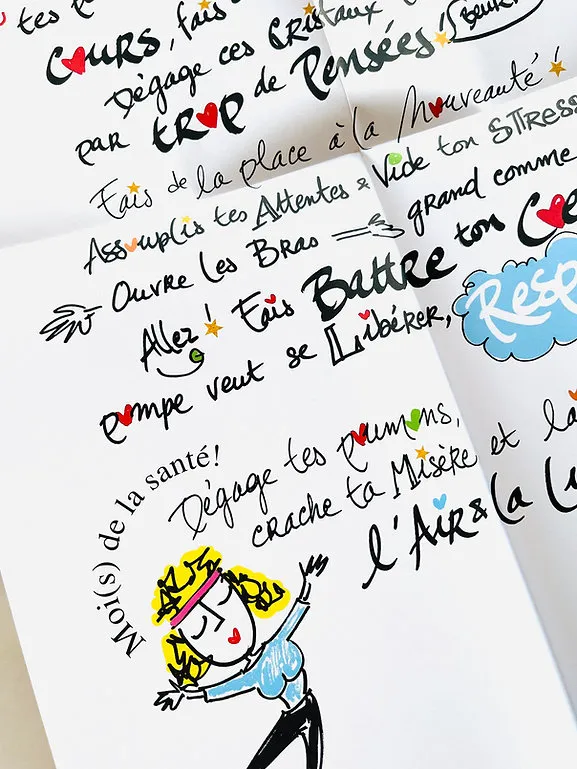 tes
Cours, fais
Dégage ces Cristaux
par trop de Pensées!
Fais de la place à la Nouveauté!
Assouplis tes Attentes & Vide ton STRESS
Ouvre les Bras grand comme
Allez! Fais Battre ton
pompe veut se Libérer,
Moi(s) de la santé!
Dégage tes poumons,
crache ta Misère et la
l'Air & la